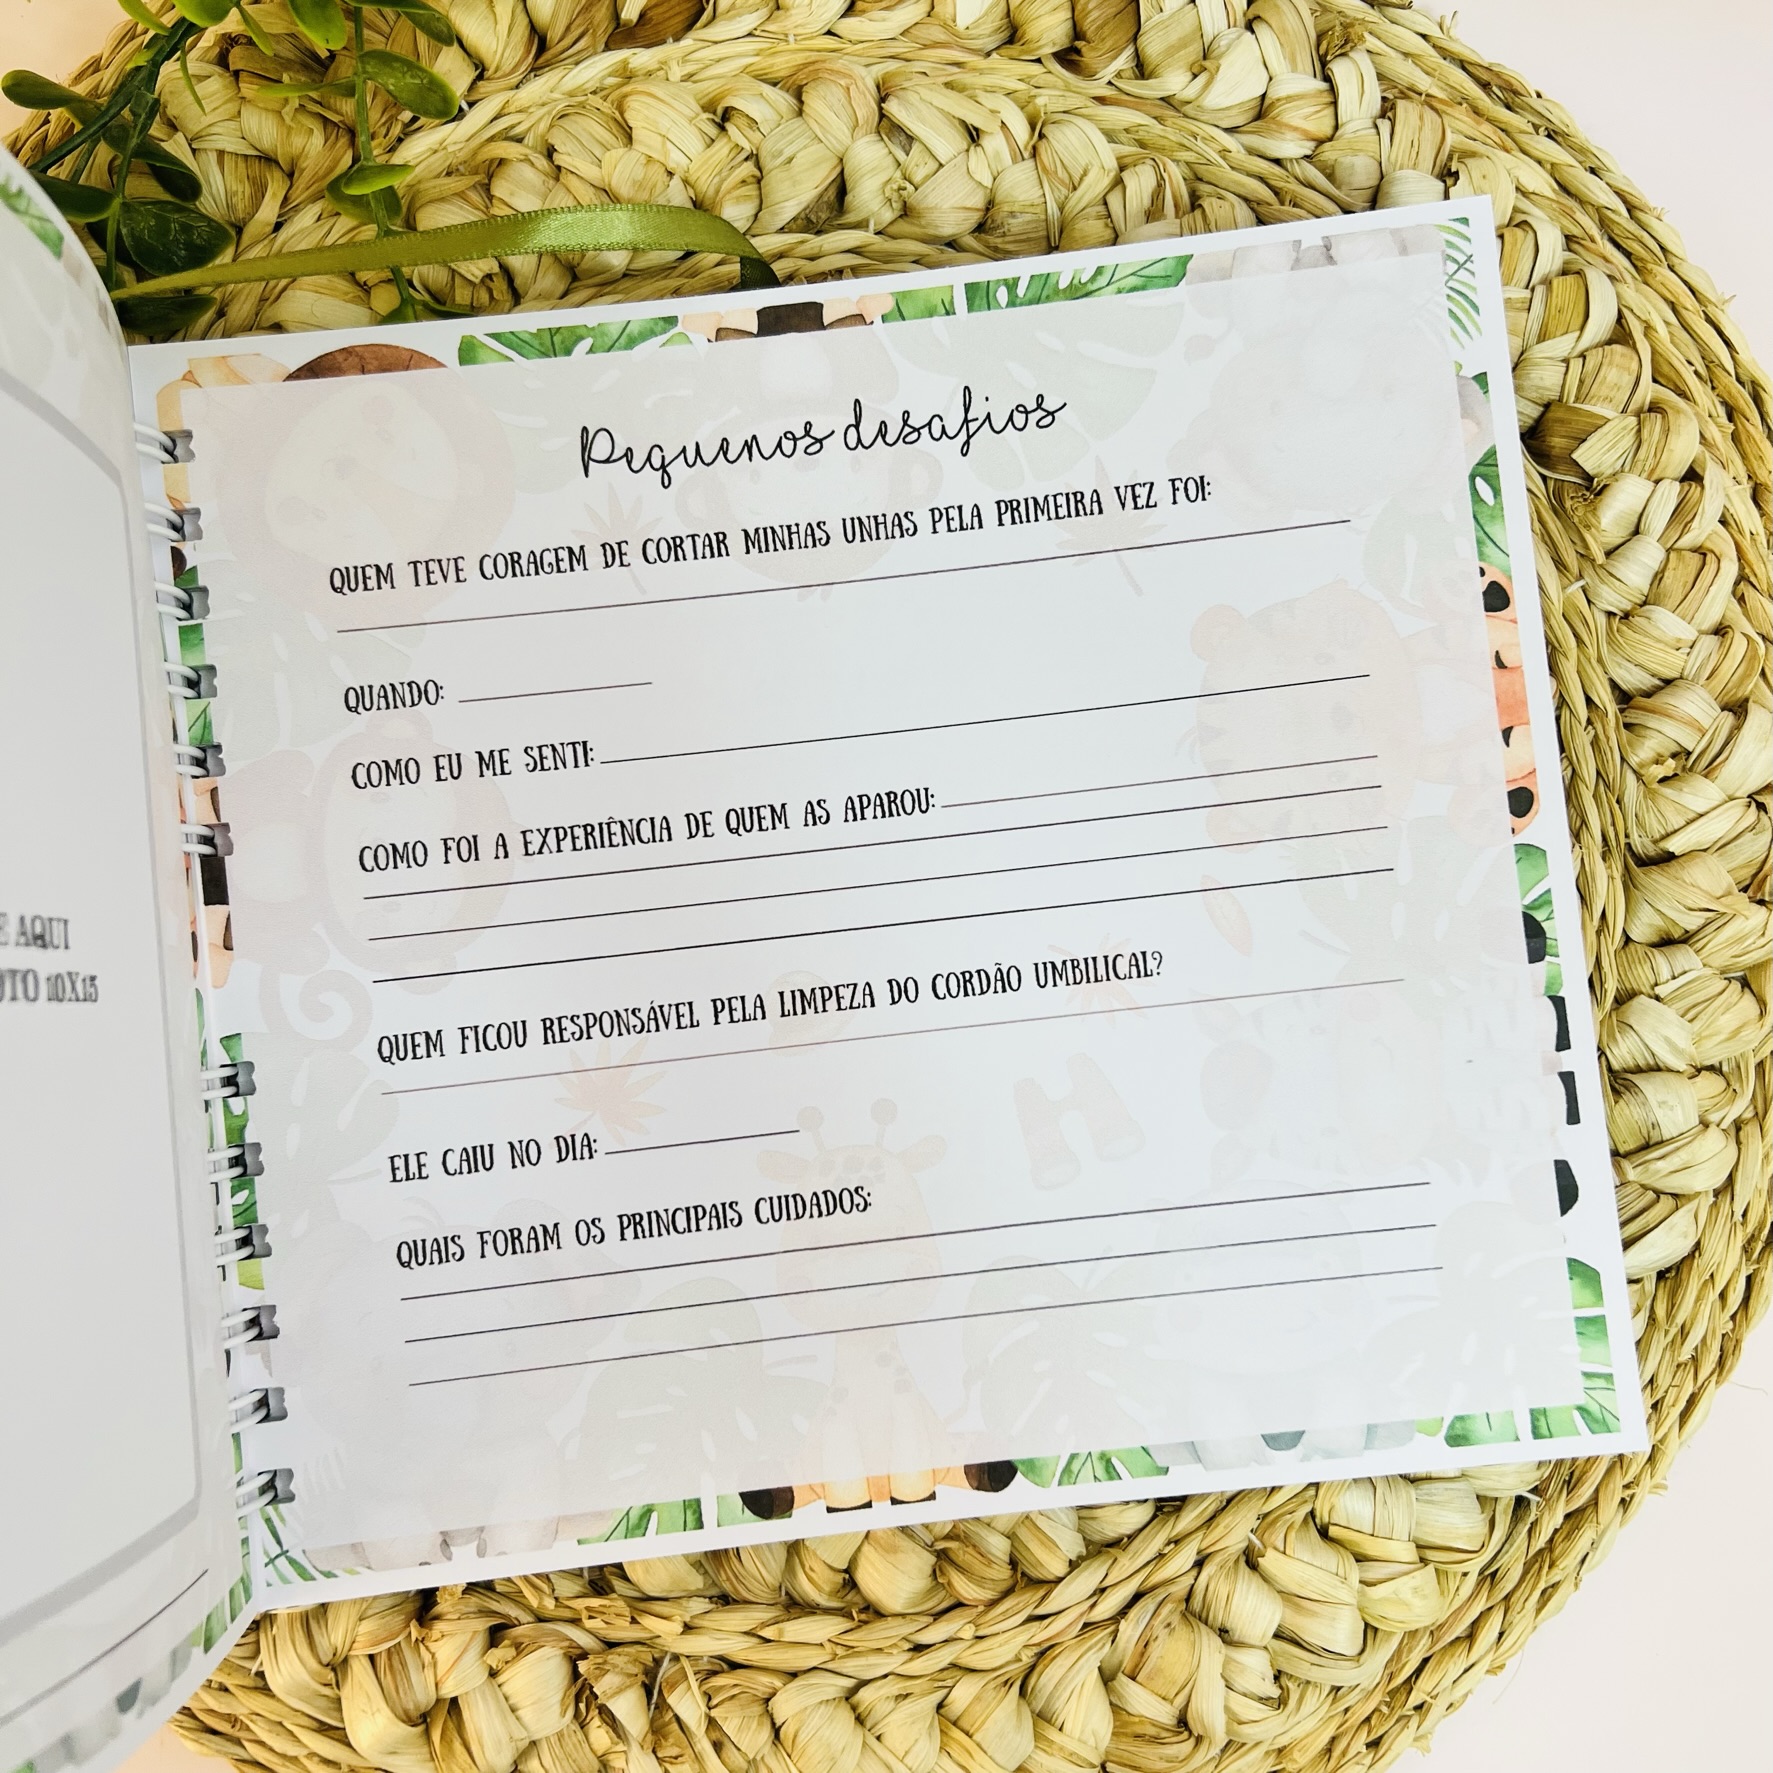 AQUI
10X15
Pequenos desafios
QUEM TEVE CORAGEM DE CORTAR MINHAS UNHAS PELA PRIMEIRA VEZ FOI:
QUANDO:
COMO EU ME SENTI:
COMO FOI A EXPERIÊNCIA DE QUEM AS APAROU:
QUEM FICOU RESPONSÁVEL PELA LIMPEZA DO CORDÃO UMBILICAL?
ELE CAIU NO DIA:
QUAIS FORAM OS PRINCIPAIS CUIDADOS: